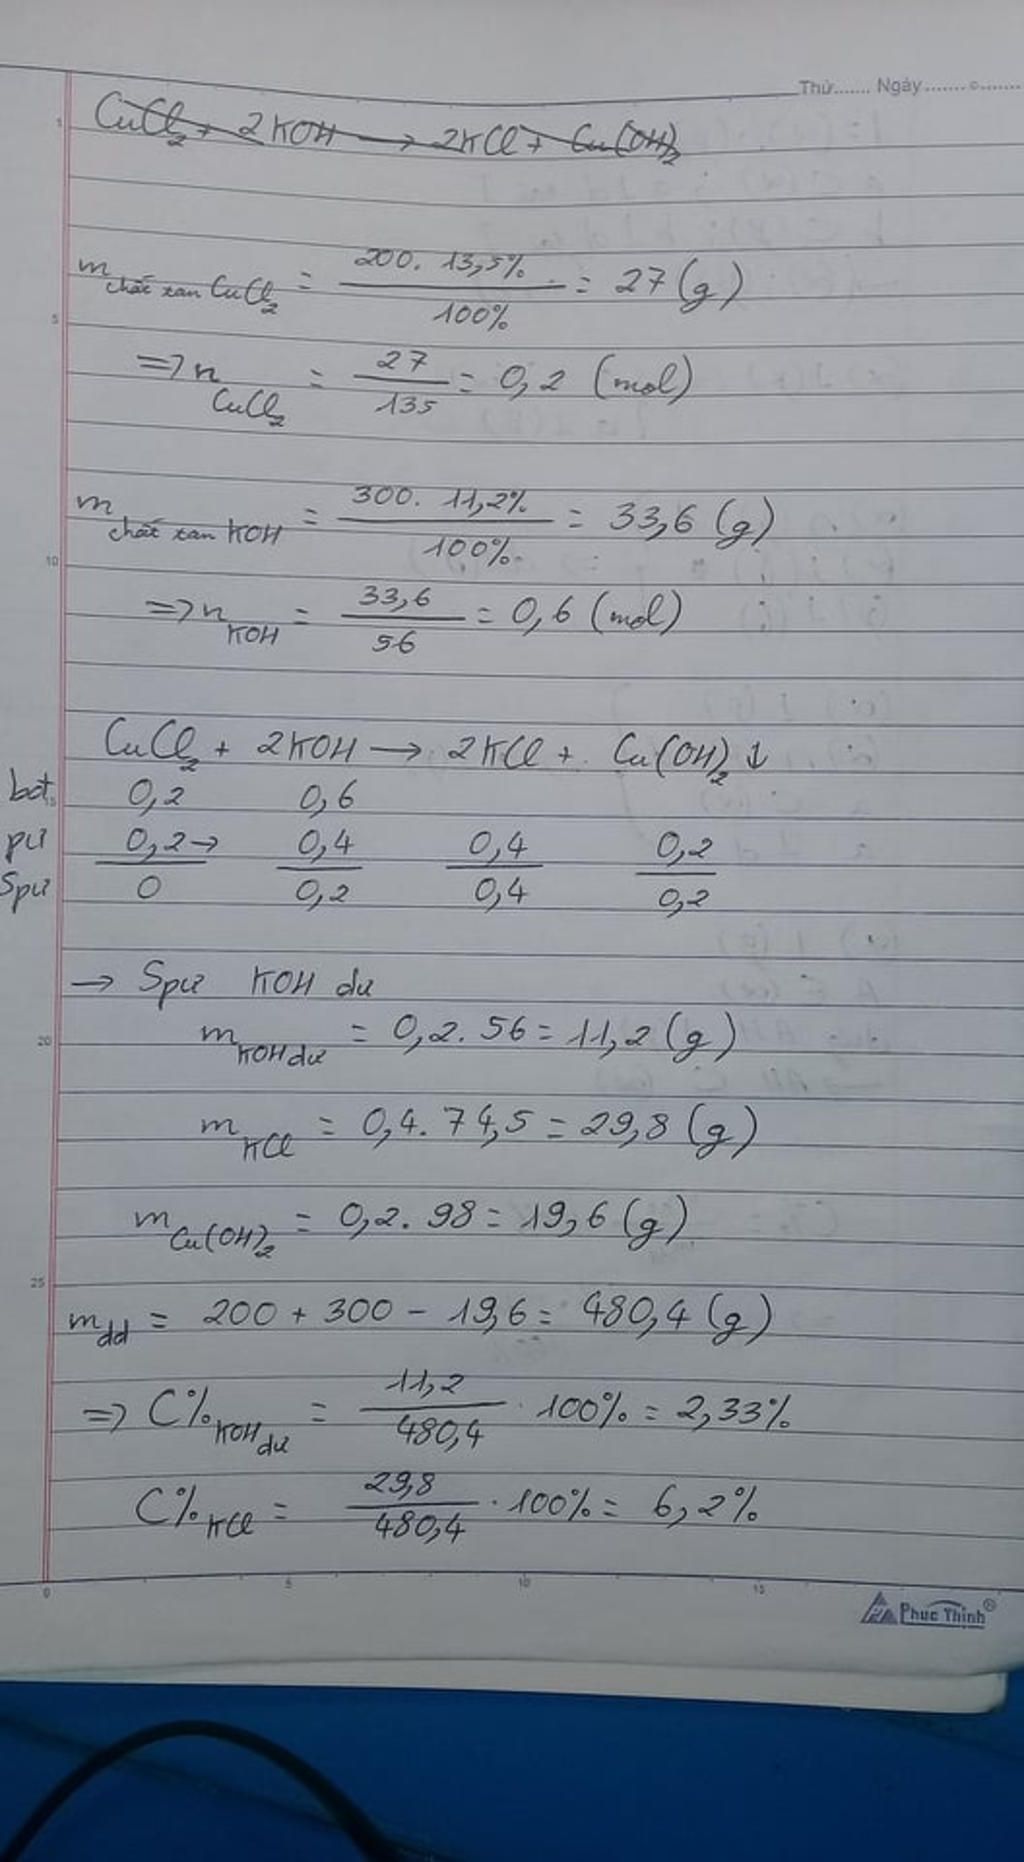 Thứ....... Ngày.......
CuCl₂ + 2KOH → 2KCl + Cu(OH)₂
m chất tan CuCl₂ = 200. 13,5% / 100% = 27 (g)
=> n CuCl₂ = 27 / 135 = 0,2 (mol)
m chất tan KOH = 300. 11,2% / 100% = 33,6 (g)
=> n KOH = 33,6 / 56 = 0,6 (mol)
CuCl₂ + 2KOH → 2KCl + Cu(OH)₂ ↓
bđ 0,2 0,6
pư 0,2 → 0,4 0,4 0,2
Spư 0 0,2 0,4 0,2
→ Spư KOH dư
m KOH dư = 0,2. 56 = 11,2 (g)
m KCl = 0,4. 74,5 = 29,8 (g)
m Cu(OH)₂ = 0,2. 98 = 19,6 (g)
m dd = 200 + 300 - 19,6 = 480,4 (g)
=> C% KOH dư = 11,2 / 480,4 . 100% = 2,33%
C% KCl = 29,8 / 480,4 . 100% = 6,2%
Phuc Thinh®